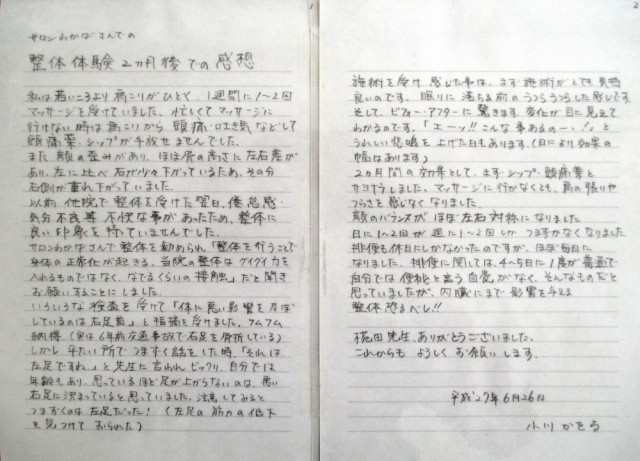 サロンわかばさんでの
整体体験2ヵ月後での感想
私は若いころより肩こりがひどく、1週間に1〜2回
マッサージを受けていました。忙しくてマッサージに
行けない時は肩こりから頭痛・吐き気などして
頭痛薬・シップが手放せませんでした。
また顔の歪みがあり、ほほ骨の高さに左右差が
あり、左に比べ右が少々下がっているため、その分
右側が垂れ下がっていました。
以前他院で整体を受けた翌日、倦怠感・
気分不良等不快な事があったため、整体に
良い印象を持っていませんでした。
サロンわかばさんで整体を勧められ「整体を行うことで
身体の正常化が起きる。当院の整体はグイグイ力を
入れるものではなく、なでるくらいの接触」だと聞き
お願いすることにしました。
いろいろな検査を受けて「体に悪い影響を及ぼ
しているのは右足首」と指摘を受けました。フムフム
納得(実は6年前交通事故で右足を骨折している)
しかし平たい所でつまずく話をした時、「それは
左足ですね。」と先生に言われビックリ。自分では
年齢もあり、思っているほど足が上がらないのは、悪い
右足に決まっていると思っていました。注意してみると
つまずくのは左足だった!(左足の筋力の低下
を見つけておられた)
2
施術を受け感じた事は、まず施術がとても気持
良いのです。眠りに落ちる前のうつらうつらした感じです。
そして、ビフォー・アフターに驚きます。変化が目に見えて
わかるのです。「エーッ!!こんな事あるのー・・!」と
うれしい悲鳴を上げた日もあります。(日により効果の
幅はあります)
2ヵ月間の効果として、まずシップ・頭痛薬と
サヨナラしました。マッサージに行かなくても、肩の張りや
つらさを感じなくなりました。
顔のバランスがほぼ左右対称になりました
日に1〜2回が週に1〜2回しかつまずかなくなりました
排便も休日にしかなかったのですが、ほぼ毎日に
なりました。排便に関しては、4〜5日に1度が普通で
自分では便秘と言う自覚がなく、そんなものだと
思っていましたが、内臓にまで影響を与える
整体恐るべし!!
先生、ありがとうございました。
これからもよろしくお願いします。
平成27年6月26日
小川かをる